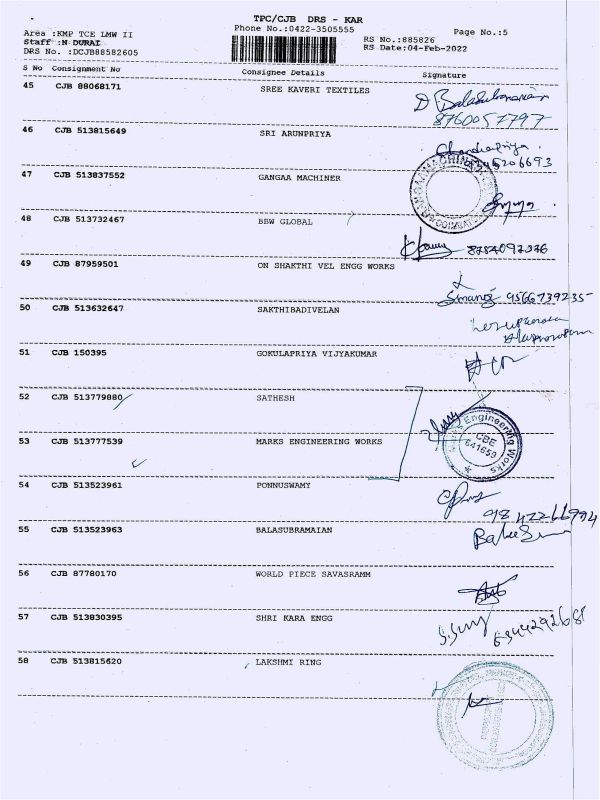 TPC/CJB DRS - KAR
Area :KMP TCE LMW II Phone No.:0422-3505555 Page No.:5
Staff :N DURAI RS No.:885826
DRS No. :DCJB88582605 RS Date:04-Feb-2022
S No Consignment No Consignee Details Signature
45 CJB 88068171 SREE KAVERI TEXTILES
D Balasubramanian
8760057797
46 CJB 513815649 SRI ARUNPRIYA
47 CJB 513837552 GANGAA MACHINER
48 CJB 513732467 BBW GLOBAL
49 CJB 87959501 ON SHAKTHI VEL ENGG WORKS
9566739235
50 CJB 513632647 SAKTHIBADIVELAN
51 CJB 150395 GOKULAPRIYA VIJYAKUMAR
52 CJB 513779880 SATHESH
53 CJB 513777539 MARKS ENGINEERING WORKS
Engineering Works
CBE
641659
54 CJB 513523961 PONNUSWAMY
55 CJB 513523963 BALASUBRAMAIAN
56 CJB 87780170 WORLD PIECE SAVASRAMM
57 CJB 513830395 SHRI KARA ENGG
58 CJB 513815620 LAKSHMI RING